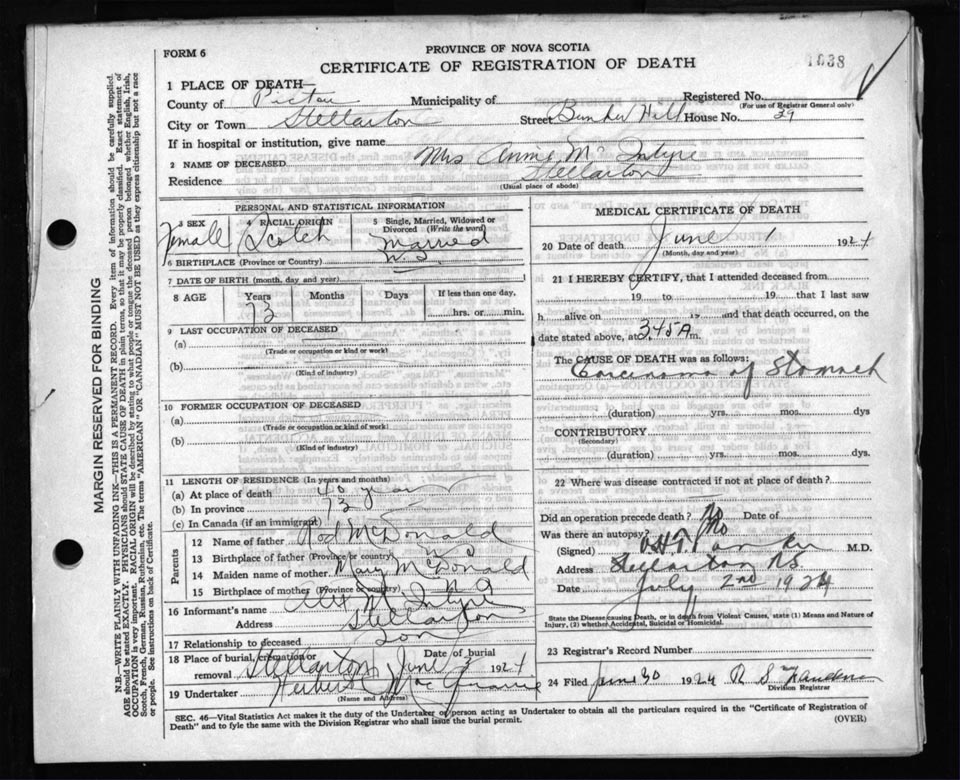 PROVINCE OF NOVA SCOTIA
FORM 6
CERTIFICATE OF REGISTRATION OF DEATH
1038
1 PLACE OF DEATH—
County of Pictou Municipality of Registered No.
(For use of Registrar General only)
City or Town Stellarton Street Bunker Hill House No. 29
If in hospital or institution, give name
2 NAME OF DECEASED Mrs Annie McIntyre
Residence Stellarton
(Usual place of abode)
PERSONAL AND STATISTICAL INFORMATION
3 SEX Female
4 RACIAL ORIGIN Scotch
5 Single, Married, Widowed or Divorced (Write the word) Married
6 BIRTHPLACE (Province or Country) N.S.
7 DATE OF BIRTH (month, day and year)
8 AGE Years 73 Months Days If less than one day, hrs. or min.
9 LAST OCCUPATION OF DECEASED
(a)
(Trade or occupation or kind or work)
(b)
(Kind of industry)
10 FORMER OCCUPATION OF DECEASED
(a)
(Trade or occupation or kind of work)
(b)
(Kind of industry)
11 LENGTH OF RESIDENCE (In years and months)
(a) At place of death 40 years
(b) In province 73
(c) In Canada (if an immigrant)
Parents
12 Name of father Rod McDonald
13 Birthplace of father (Province or country) N S
14 Maiden name of mother Mary McDonald
15 Birthplace of mother (Province or country) N S
16 Informant's name Alex McIntyre
Address Stellarton
17 Relationship to deceased Son
18 Place of burial, cremation or removal Stellarton Date of burial June 3 1924
19 Undertaker
(Name and Address)
MEDICAL CERTIFICATE OF DEATH
20 Date of death June 1 1924
(Month, day and year)
21 I HEREBY CERTIFY, that I attended deceased from
19 to 19 that I last saw
h alive on 19 and that death occurred, on the
date stated above, at 3.45 A m.
The CAUSE OF DEATH was as follows:
Carcinoma of Stomach
(duration) yrs. mos. dys
CONTRIBUTORY
(Secondary)
(duration) yrs. mos. dys
22 Where was disease contracted if not at place of death?
Did an operation precede death? No Date of
Was there an autopsy? No
(Signed) M.D.
Address Stellarton N.S.
Date July 2nd 1924
State the Disease causing Death, or in death from Violent Causes, state (1) Means and Nature of
Injury, (2) whether Accidental, Suicidal or Homicidal.
23 Registrar's Record Number
24 Filed June 30 1924 R S
Division Registrar
SEC. 46—Vital Statistics Act makes it the duty of the Undertaker or person acting as Undertaker to obtain all the particulars required in the "Certificate of Registration of
Death" and to fyle the same with the Division Registrar who shall issue the burial permit.
(OVER)
MARGIN RESERVED FOR BINDING
N.B.—WRITE PLAINLY WITH UNFADING INK—THIS IS A PERMANENT RECORD. Every item of information should be carefully supplied.
AGE should be stated EXACTLY. PHYSICIANS should STATE CAUSE OF DEATH in plain terms, so that it may be properly classified. Exact statement of
OCCUPATION is very important. RACIAL ORIGIN will be described by stating to what people or tongue the deceased person belonged whether English, Irish,
Scotch, French, German, Russian, Ruthenian, etc. The terms "AMERICAN" or "CANADIAN" MUST NOT BE USED as they express citizenship but not a race
or people. See instructions on back of Certificate.